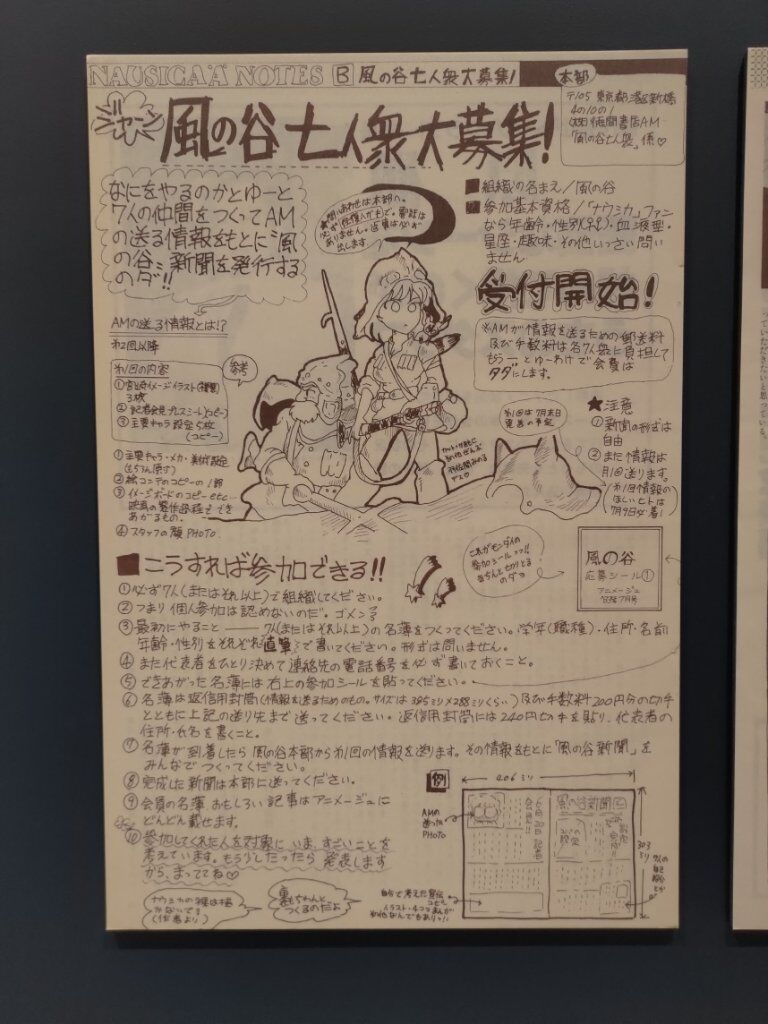 NAUSICAÄ NOTES B 風の谷七人衆大募集!
ジャーン
風の谷七人衆大募集!
本部
〒105 東京都港区新橋
4の10の1
徳間書店AM
「風の谷七人衆」係♡
なにをやるのかとゆーと
7人の仲間をつくってAM
の送る情報をもとに"風
の谷"新聞を発行する
のダ!!
問いあわせは本部へ。
必ず往復ハガキで。電話は
ありません。返事は必ず
出します。
■組織の名まえ/風の谷
■参加基本資格/「ナウシカ」ファン
なら年齢・性別・血液型・
星座・趣味・その他いっさい問い
ません
受付開始!
※AMが情報を送るための郵送料
及び手数料は各7人衆に負担して
もらーとゆーわけで会費は
タダにします。
AMの送る情報とは!?
第2回以降
第1回の内容
3枚
②記者会見プレスシート(コピー)
③主要キャラ設定5枚
(コピー)
参考
①主要キャラ・メカ・美術設定
②絵コンテのコピーの1部
③イメージボードのコピーetc
映画の製作過程で
あがるもの。
④スタッフの顔PHOTO.
第1回は7月末日
発送の予定
★注意
①新聞の形式は
自由
②また情報は
月1回送ります。
第1回情報の
ほしいヒトは
7月9日必着!
■こうすれば参加できる!!
これがモンダイの
参加シールっす!!
きちんと切りとる
のダ
風の谷
応募シール①
アニメージュ
①必ず7人(またはそれ以上)で組織してください。
②つまり個人参加は認めないのだ。ゴメン
③最初にやること——7人(またはそれ以上)の名簿をつくってください。学年(職種)・住所・名前
年齢・性別をそれぞれ直筆で書いてください。形式は問いません。
④また代表者をひとり決めて連絡先の電話番号を必ず書いておくこと。
⑤できあがった名簿には右上の参加シールを貼ってください。
⑥名簿は返信用封筒(情報を送るためのもの。サイズは395ミリ×288ミリくらい)及び手数料200円分の切手
とともに上記の送り先まで送ってください。返信用封筒には240円切手を貼り、代表者の
住所・氏名を書くこと。
⑦名簿が到着したら風の谷本部から第1回の情報を送ります。その情報をもとに「風の谷新聞」を
みんなでつくってください。
⑧完成した新聞は本部に送ってください。
⑨会員の名簿、おもしろい記事はアニメージュに
どんどん載せます。
⑩参加してくれた人を対象にいま、すごいことを
考えています。もう少したったら発表します
から、まっててね♡
例
406ミリ
303ミリ
AMの
送った
PHOTO
風の谷新聞
自分で考えた宣伝
コピー
イラスト・4コマまんが
その他なんでもありっ!!
裏もちゃんと
つくるのだよ